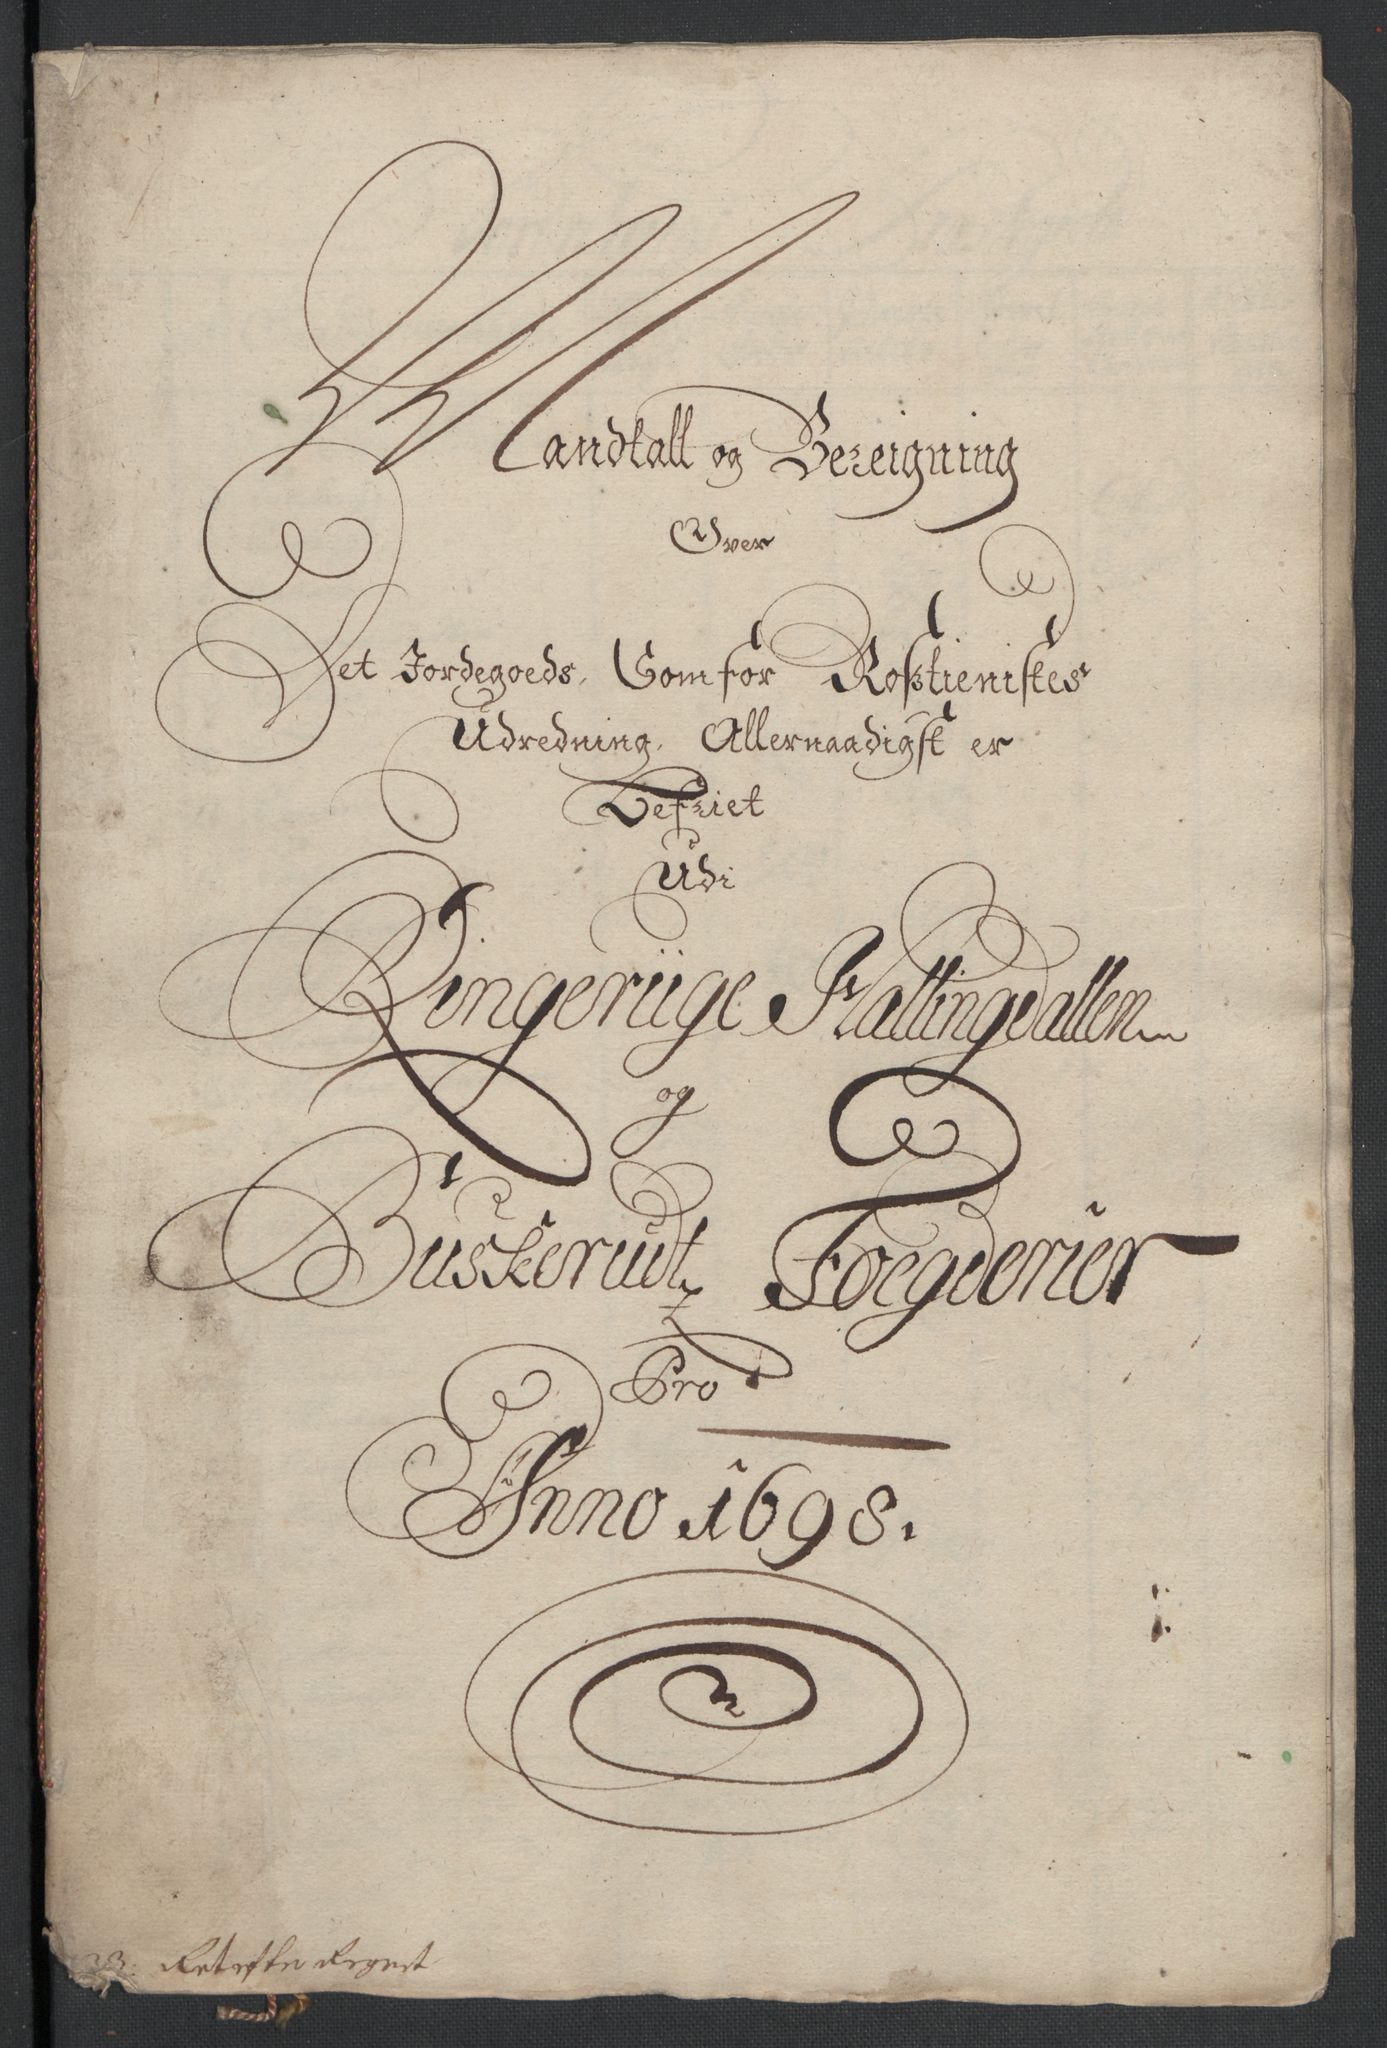 Mandtall og Bereigning
Over
Det Jordegoeds, Som for Rostienistes
Udredning, Allernaadigst er
Befriet
Udi
Ringeriige Hallingdallen
og
Buskerudtz Foegderier
Pro
Anno 1698.
Regnet